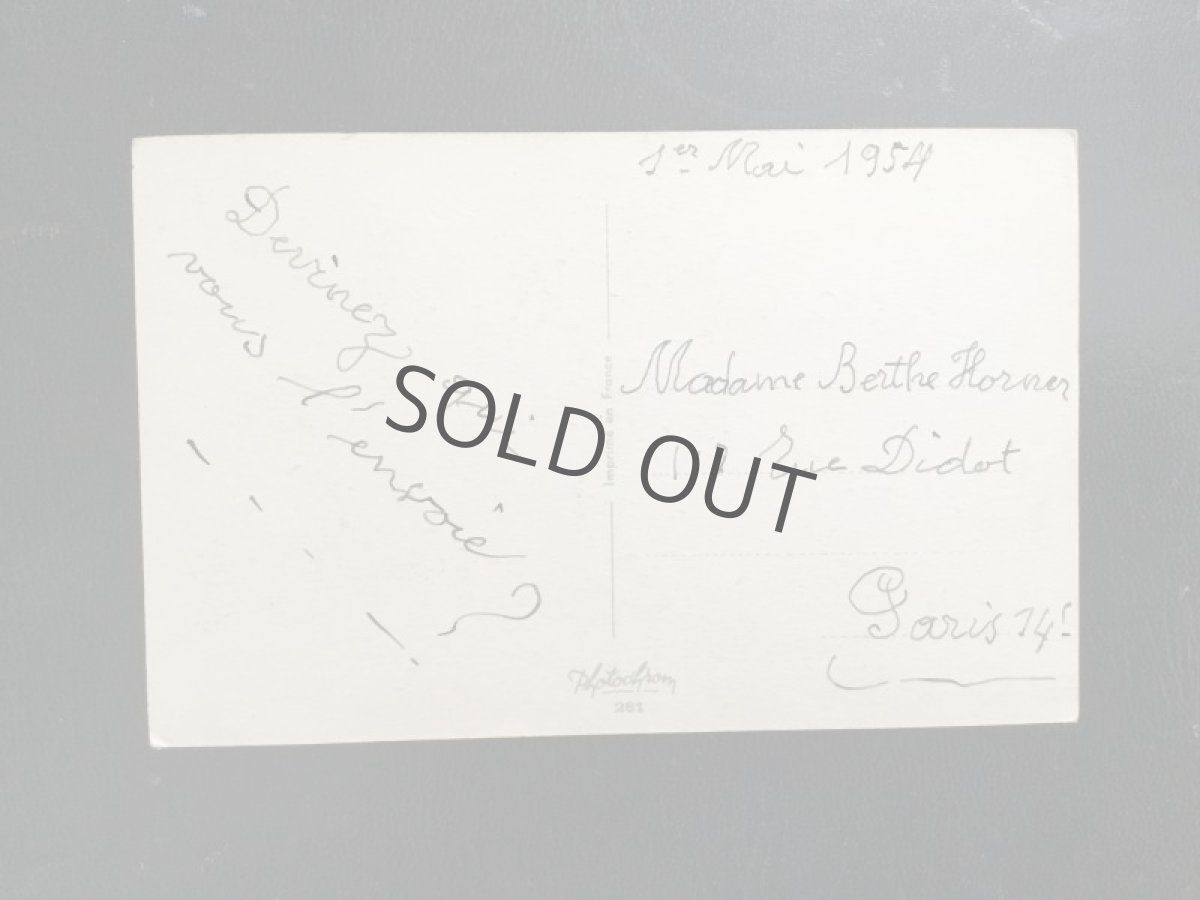 1er Mai 1954
Devinez qui
vous l'envoie
?
!
Madame Berthe Horner
Rue Didot
Paris 14e
Imprimé en France
Photochrom
261
SOLD OUT